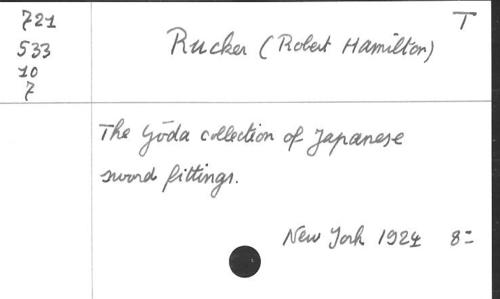 721
533
10
7
T
Rucker (Robert Hamilton)
The Gōda collection of Japanese
sword fittings.
New York 1924 8º